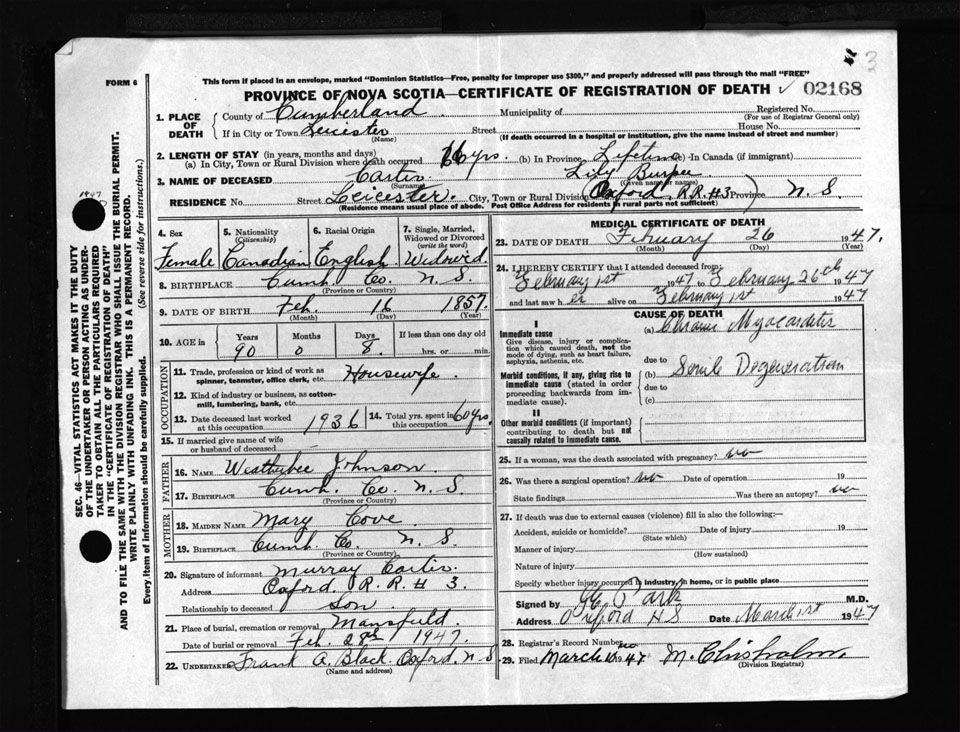 3
FORM 6
This form if placed in an envelope, marked "Dominion Statistics—Free, penalty for improper use $300," and properly addressed will pass through the mail "FREE"
PROVINCE OF NOVA SCOTIA—CERTIFICATE OF REGISTRATION OF DEATH ✓ 02168
1. PLACE OF DEATH
County of Cumberland Municipality of Registered No.
(For use of Registrar General only)
If in City or Town Leicester Street House No.
(Name) (If death occurred in a hospital or institution, give the name instead of street and number)
2. LENGTH OF STAY (in years, months and days)
(a) In City, Town or Rural Division where death occurred 66 yrs. (b) In Province Lifetime (c) In Canada (if immigrant)
3. NAME OF DECEASED Carter Lily Burpee
(Surname) (Given name or names)
RESIDENCE No. Street Leicester. City, Town or Rural Division (Oxford, R.R. #3) Province N.S.
(Residence means usual place of abode. Post Office Address for residents in rural parts not sufficient)
4. Sex Female
5. Nationality (Citizenship) Canadian
6. Racial Origin English
7. Single, Married, Widowed or Divorced (write the word) Widowed.
8. BIRTHPLACE Cumb. Co. N.S.
(Province or Country)
9. DATE OF BIRTH Feb. 16 1857.
(Month) (Day) (Year)
10. AGE in Years 90 Months 0 Days 8. If less than one day old hrs. or min.
OCCUPATION
11. Trade, profession or kind of work as spinner, teamster, office clerk, etc. Housewife.
12. Kind of industry or business, as cotton-mill, lumbering, bank, etc.
13. Date deceased last worked at this occupation 1936
14. Total yrs. spent in this occupation 60 yrs.
15. If married give name of wife or husband of deceased
FATHER
16. NAME Weatherbee Johnson.
17. BIRTHPLACE Cumb. Co. N.S.
(Province or Country)
MOTHER
18. MAIDEN NAME Mary Cove
19. BIRTHPLACE Cumb. Co. N.S.
(Province or Country)
20. Signature of informant Murray Carter
Address Oxford R.R. # 3
Relationship to deceased son.
21. Place of burial, cremation or removal Mansfield.
Date of burial or removal Feb 28th 1947.
22. UNDERTAKER Frank A. Black. Oxford. N.S
(Name and address)
MEDICAL CERTIFICATE OF DEATH
23. DATE OF DEATH February 26 1947.
(Month) (Day) (Year)
24. I HEREBY CERTIFY that I attended deceased from:
February 1st 1947 to February 26th 1947
and last saw her alive on February 1st 1947
CAUSE OF DEATH
I
Immediate cause
Give disease, injury or complication which caused death, not the mode of dying, such as heart failure, asphyxia, asthenia, etc.
(a) Chronic Myocarditis
due to
Morbid conditions, if any, giving rise to immediate cause (stated in order proceeding backwards from immediate cause).
(b) Senile Degeneration
due to
(c)
II
Other morbid conditions (if important) contributing to death but not causally related to immediate cause.
25. If a woman, was the death associated with pregnancy? no
26. Was there a surgical operation? no Date of operation 19
State findings Was there an autopsy? no
27. If death was due to external causes (violence) fill in also the following:—
Accident, suicide or homicide? Date of injury 19
(State which)
Manner of injury
(How sustained)
Nature of injury
Specify whether injury occurred in industry, in home, or in public place
Signed by Park M.D.
Address Oxford NS Date March 1st 1947
28. Registrar's Record Number
29. Filed March 1947 M. Chisholm.
(Division Registrar)
SEC. 46—VITAL STATISTICS ACT MAKES IT THE DUTY
OF THE UNDERTAKER OR PERSON ACTING AS UNDER-
TAKER TO OBTAIN ALL THE PARTICULARS REQUIRED
IN THE "CERTIFICATE OF REGISTRATION OF DEATH"
AND TO FILE THE SAME WITH THE DIVISION REGISTRAR WHO SHALL ISSUE THE BURIAL PERMIT.
WRITE PLAINLY WITH UNFADING INK. THIS IS A PERMANENT RECORD.
Every item of information should be carefully supplied. (See reverse side for instructions.)
1947